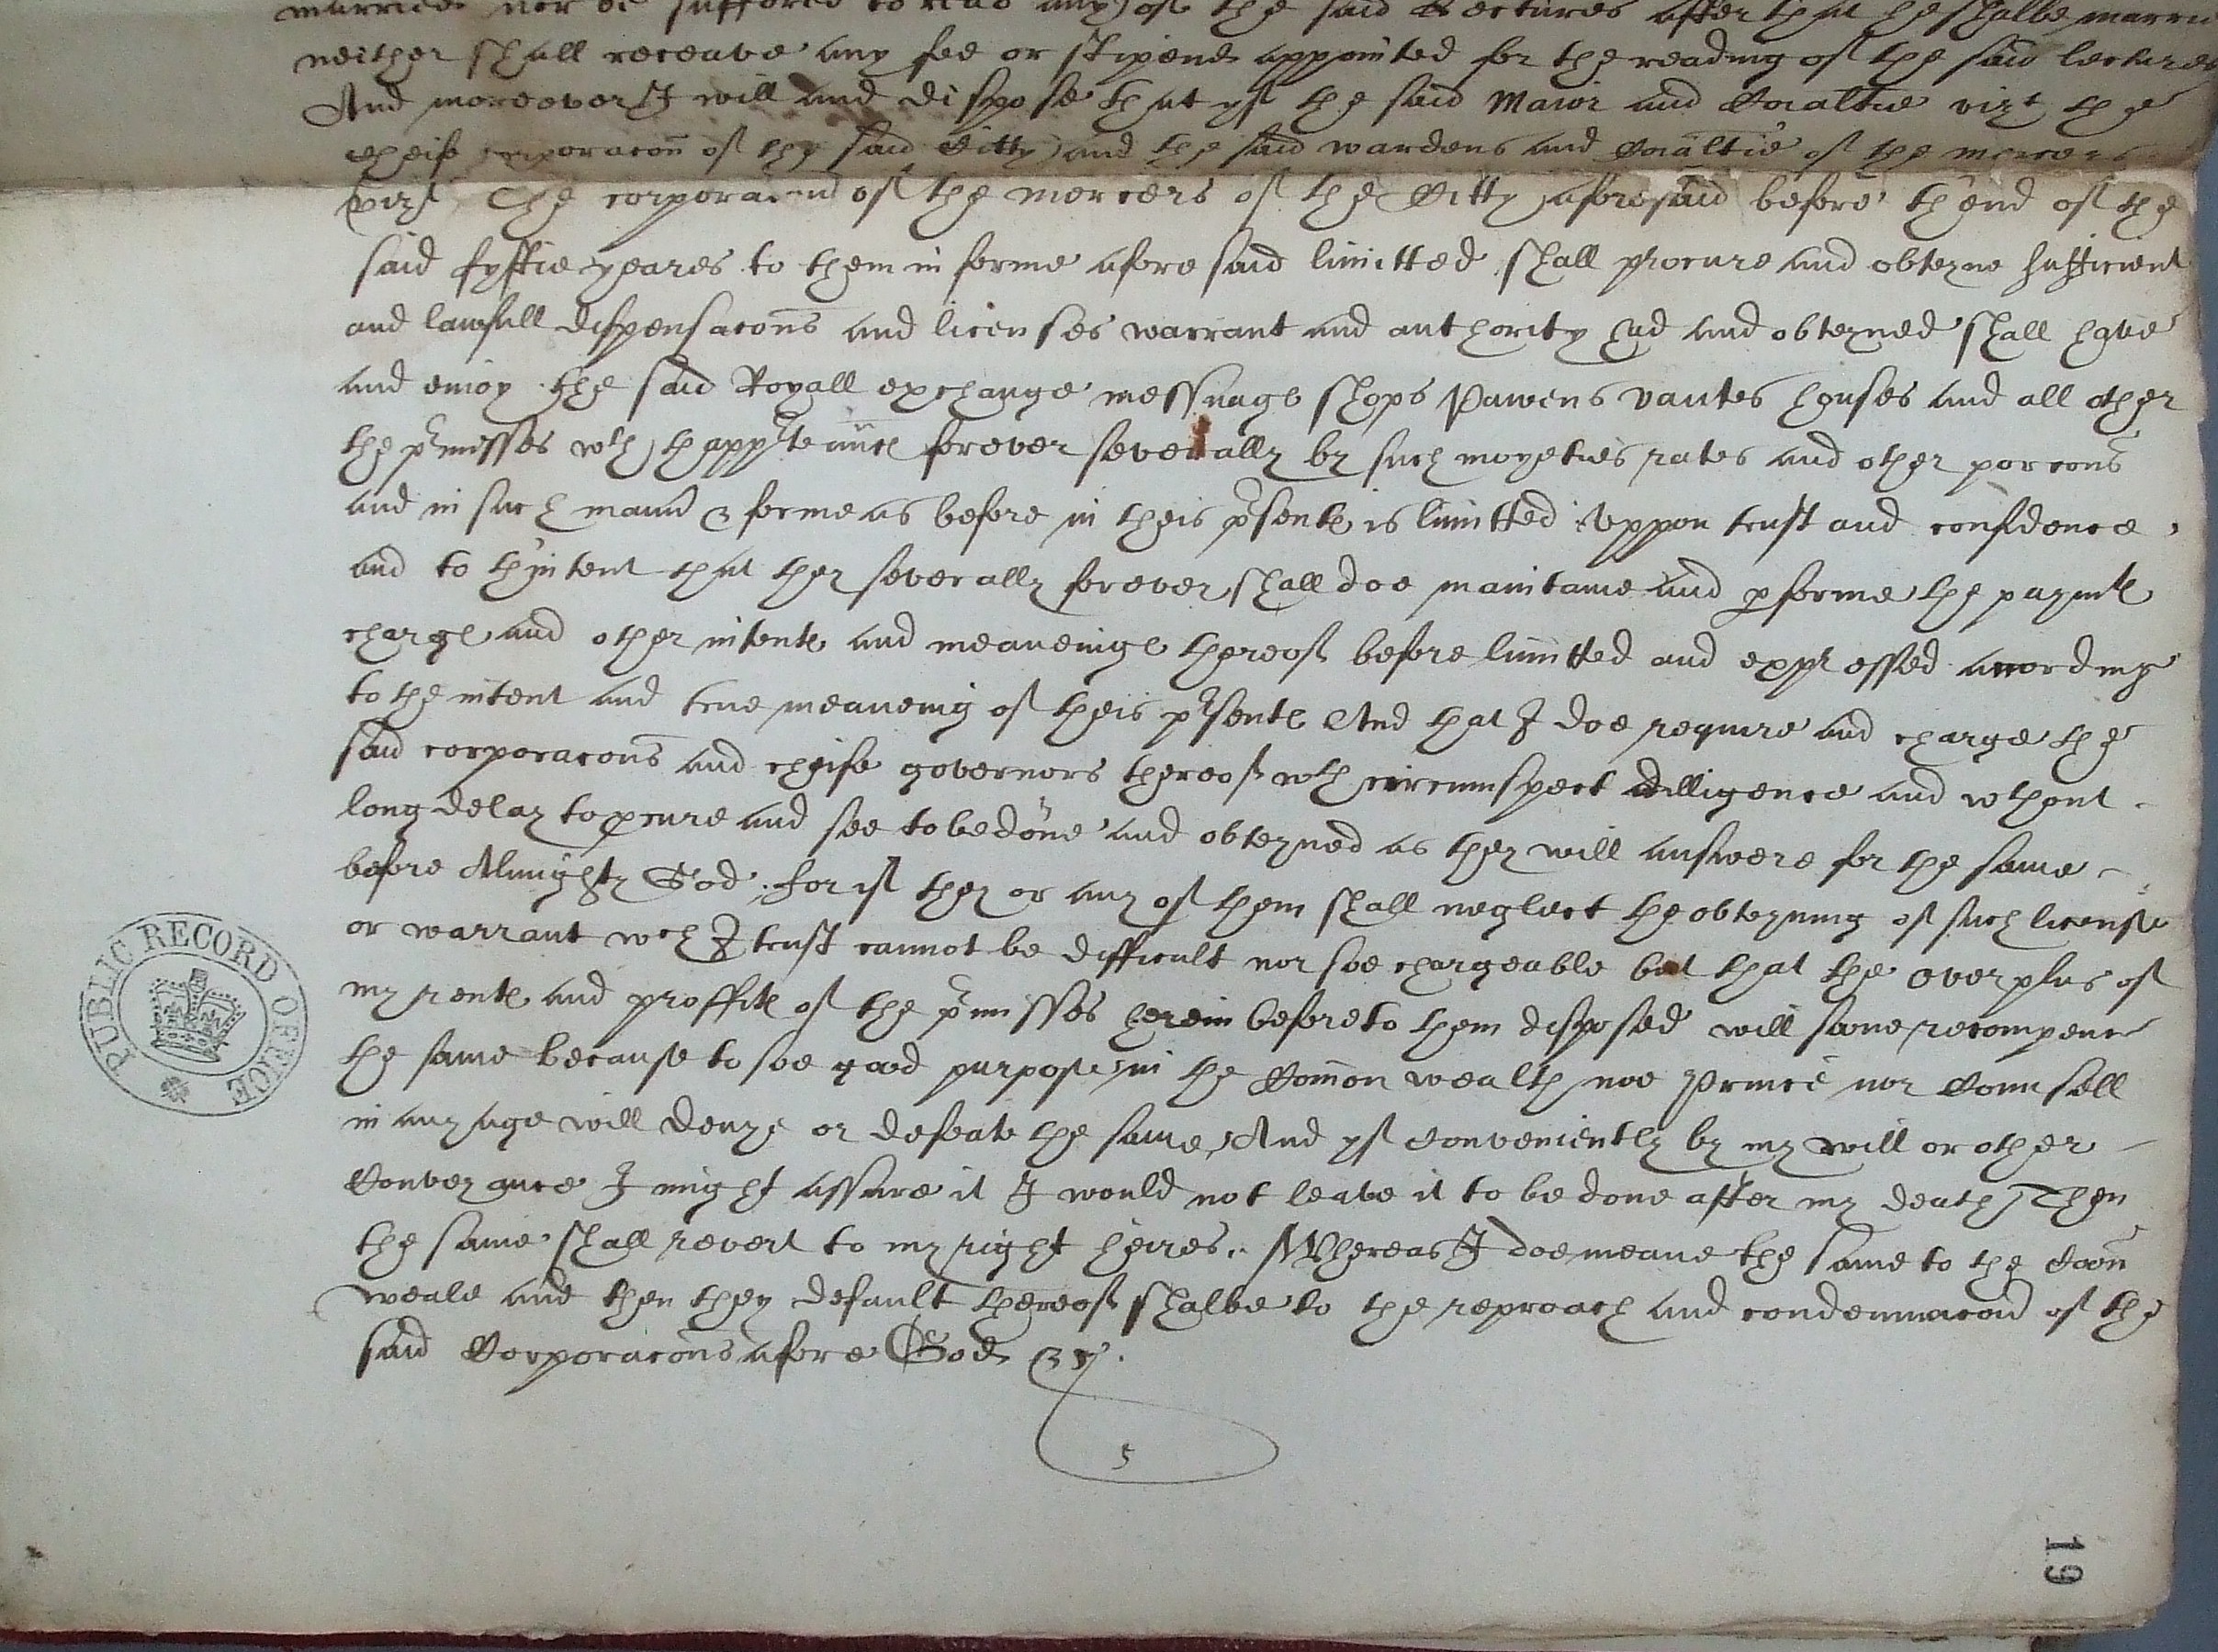 married nor be suffered to read any of the said Lectures after that he shalbe married
neither shall receave any fee or stipend appointed for the reading of the said lectures
And moreover I will and dispose that yf the said Maior and Coialtie vizt the
cheife corporacon of the said Citty and the said wardens and Coialtie of the mercers
vizt The corporacon of the mercers of the Citty aforesaid before thend of the
said fyftie yeares to them in forme afore said limitted shall procure and obteyne sufficient
and lawfull dispensacons and licenses warrant and authority had and obteyned shall have
and enioy the said Royall exchange messuage shops Pawens vautes houses and all other
the pmisses wth thapptennces forever severally by such moyeties rates and other porcons
and in such mann & forme as before in theis psentes is limitted Uppon trust and confidence
and to thintent that they severally forever shall doe maintaine and pforme the paymtes
charges and other intentes and meaneinges thereof before limitted and expressed according
to the intent and true meaneing of theis psentes And that I doe require and charge the
said corporacons and cheife governors thereof wth circumspect dilligence and wthout
long delay to pcure and see to be done and obteyned as they will answere for the same
before Almighty God. for if they or any of them shall neglect the obteyning of such license
or warrant wch I trust cannot be difficult nor soe chargeable but that the overplus of
my rentes and proffites of the pmisses herein before to them disposed will soone recompence
the same because to soe good purpose in the Comon wealth noe Prince nor Counsell
in any age will denye or defeate the same, And yf conveniently by my will or other
Conveyance I might assure it I would not leave it to be done after my death Then
the same shall revert to my right heires. Whereas I doe meane the same to the Coon
weale and then they default thereof shalbe to the reproach and condemnacon of the
said Corporacons afore God &c.
5
PUBLIC RECORD OFFICE
19